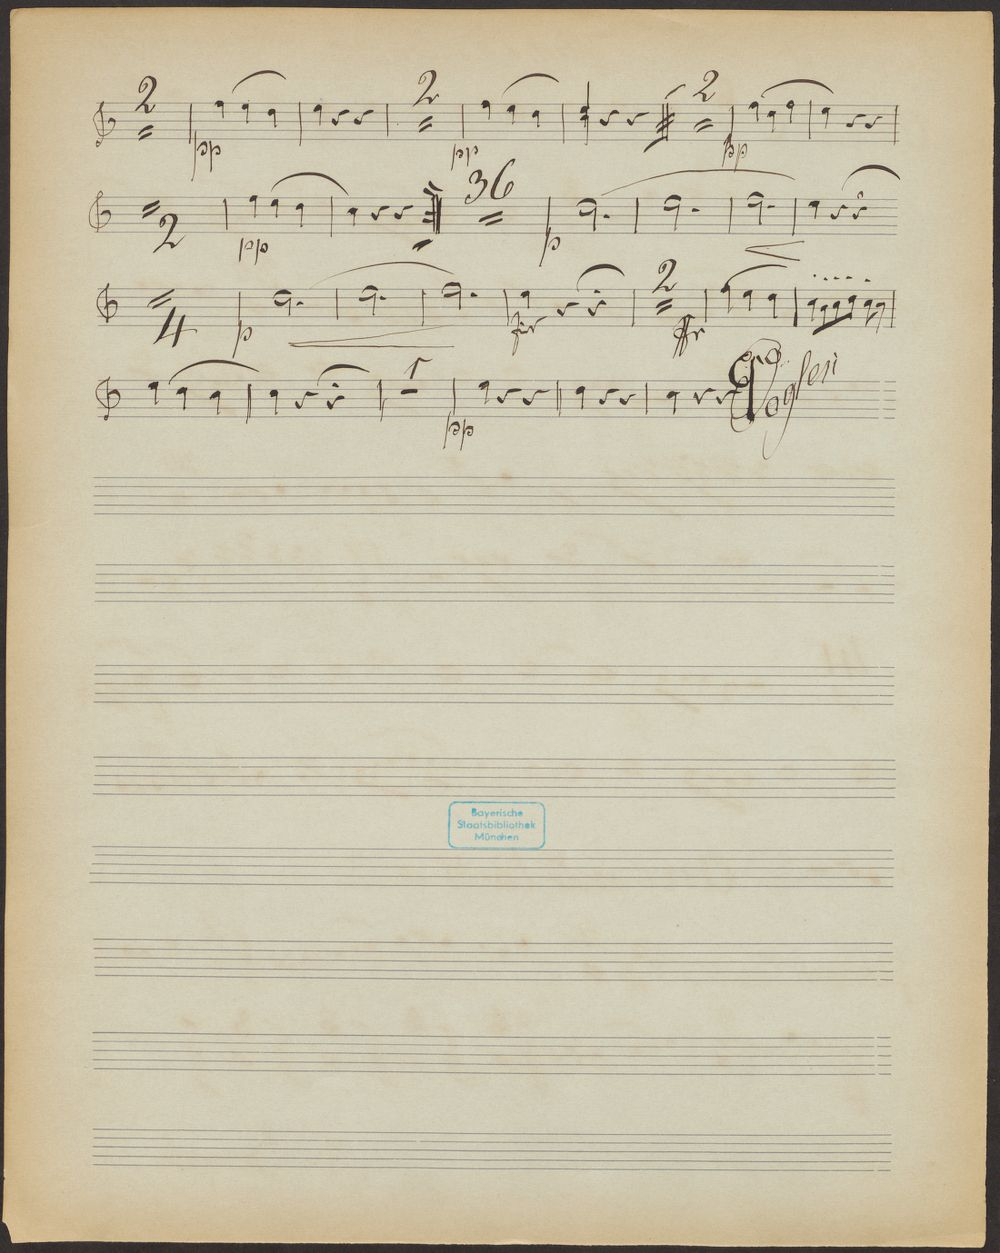 2 2 2
pp pp pp
36
2 pp p
2
4 p fz ffz
1
pp
Bayerische
Staatsbibliothek
München